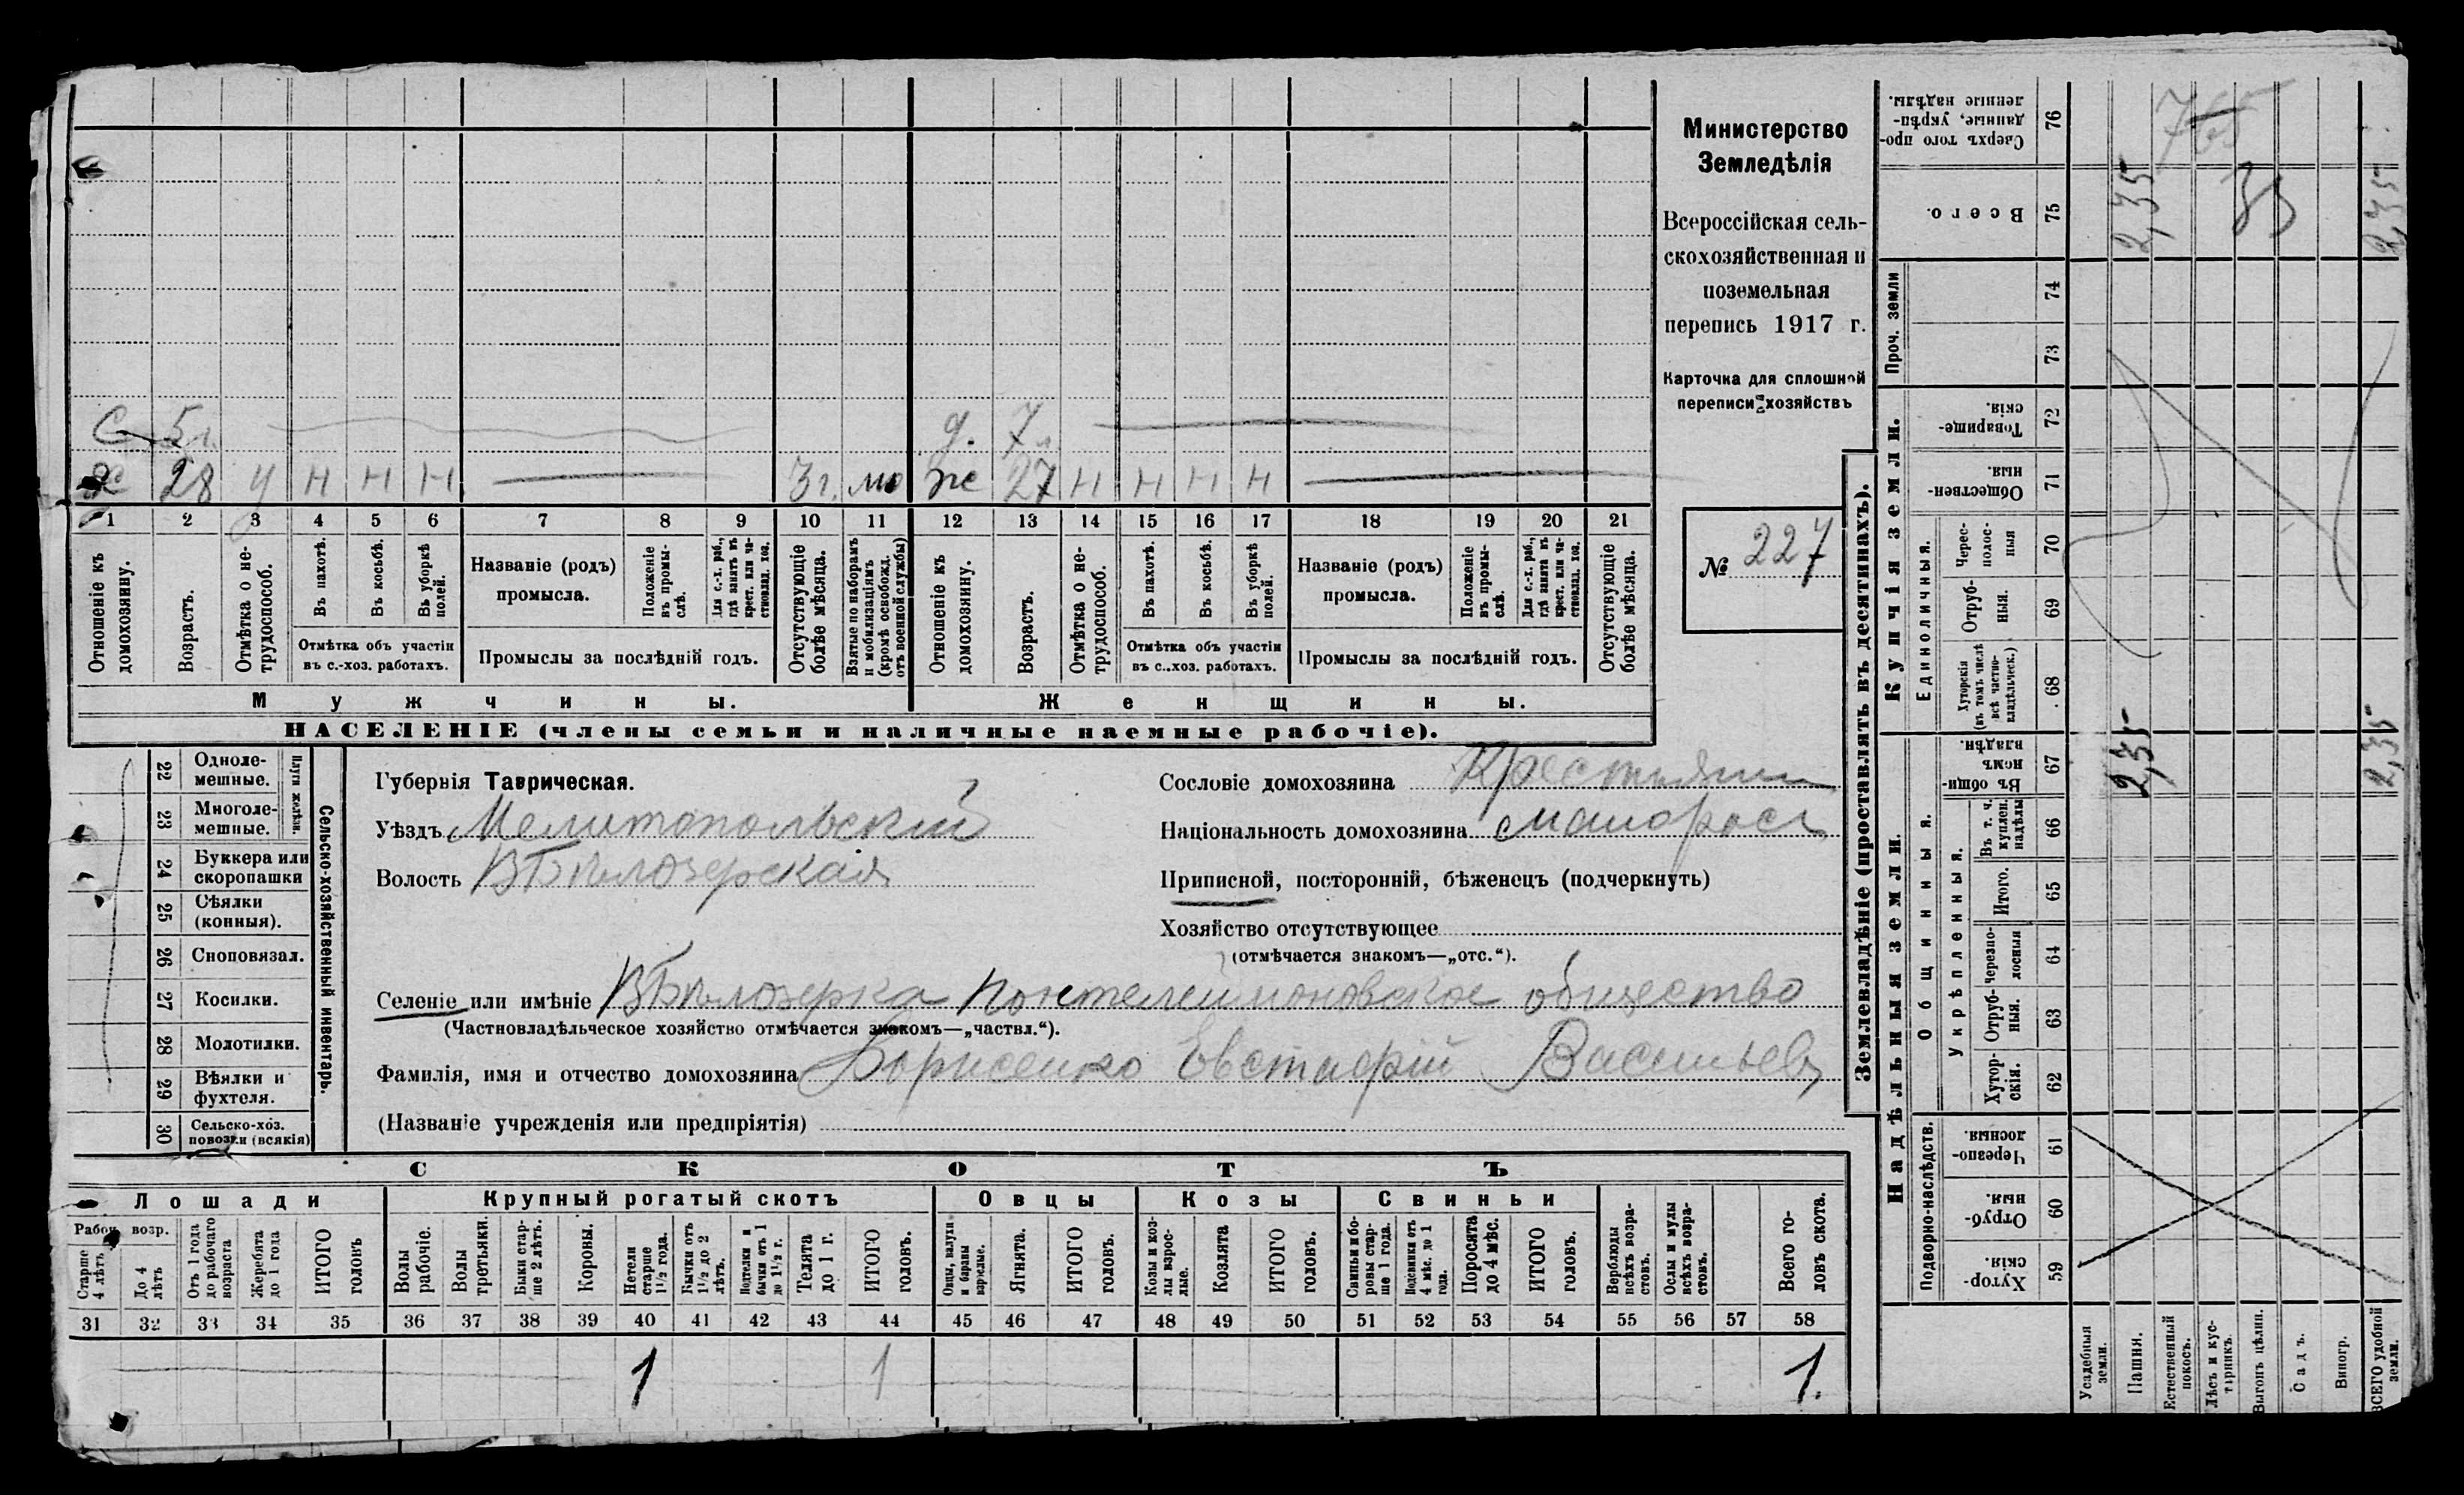 С 5 г. д. 7 л.
28 У Н Н Н 3 г. мо же 27 Н Н Н Н
1 2 3 4 5 6 7 8 9 10 11 12 13 14 15 16 17 18 19 20 21
Отношеніе къ домохозяину.
Возрастъ.
Отмѣтка о нетрудоспособ.
Въ пахотѣ.
Въ косьбѣ.
Въ уборкѣ полей.
Отмѣтка объ участіи
въ с.-хоз. работахъ.
Названіе (родъ)
промысла.
Положеніе въ промыслѣ.
Для с.-х. раб., гдѣ занятъ въ крест. или частновлад. хоз.
Промыслы за послѣдній годъ.
Отсутствующіе болѣе мѣсяца.
Взятые по наборамъ и мобилизаціямъ (кромѣ освобожд. отъ военной службы)
Отношеніе къ домохозяину.
Возрастъ.
Отмѣтка о нетрудоспособ.
Въ пахотѣ.
Въ косьбѣ.
Въ уборкѣ полей.
Отмѣтка объ участіи
въ с.-хоз. работахъ.
Названіе (родъ)
промысла.
Положеніе въ промыслѣ.
Для с.-х. раб., гдѣ занята въ крест. или частновлад. хоз.
Промыслы за послѣдній годъ.
Отсутствующіе болѣе мѣсяца.
Мужчины. Женщины.
НАСЕЛЕНІЕ (члены семьи и наличные наемные рабочіе).
Министерство
Земледѣлія
Всероссійская сель-
скохозяйственная и
поземельная
перепись 1917 г.
Карточка для сплошной
переписи хозяйствъ
№ 227
22 Одноле-
мешные.
23 Многоле-
мешные.
Плуги желѣзн.
24 Буккера или
скоропашки
25 Сѣялки
(конныя).
26 Сноповязал.
27 Косилки.
28 Молотилки.
29 Вѣялки и
фухтеля.
30 Сельско-хоз.
повозки (всякія)
Сельско-хозяйственный инвентарь.
Губернія Таврическая.
Уѣздъ Мелитопольскій
Волость ВБѣлозерская
Селеніе или имѣніе ВБѣлозерка Понтелеимоновское общество
(Частновладѣльческое хозяйство отмѣчается знакомъ—„частвл.“).
Фамилія, имя и отчество домохозяина Борисенко Евстафій Васильев
(Названіе учрежденія или предпріятія)
Сословіе домохозяина Крестьянин
Національность домохозяина малорос
Приписной, посторонній, бѣженецъ (подчеркнуть)
Хозяйство отсутствующее
(отмѣчается знакомъ—„отс.“).
СКОТЪ
Лошади Крупный рогатый скотъ Овцы Козы Свиньи
Рабоч. возр.
Старше 4 лѣтъ
До 4 лѣтъ
Отъ 1 года до рабочаго возраста
Жеребята до 1 года
ИТОГО головъ
Волы рабочіе.
Волы третьяки.
Быки старше 2 лѣтъ.
Коровы.
Нетели старше 1½ года.
Бычки отъ 1½ до 2 лѣтъ.
Подтелки и бычки отъ 1 до 1½ г.
Телята до 1 г.
ИТОГО головъ.
Овцы, валухи и бараны взрослые.
Ягнята.
ИТОГО головъ.
Козы и козлы взрослые.
Козлята
ИТОГО головъ.
Свиньи и боровы старше 1 года.
Подсвинки отъ 4 мѣс. до 1 года.
Поросята до 4 мѣс.
ИТОГО головъ.
Верблюды всѣхъ возрастовъ.
Ослы и мулы всѣхъ возрастовъ.
Всего головъ скота.
31 32 33 34 35 36 37 38 39 40 41 42 43 44 45 46 47 48 49 50 51 52 53 54 55 56 57 58
1 1 1.
Землевладѣніе (проставлять въ десятинахъ).
Надѣльныя земли.
Подворно-наслѣдств.
Хуторскія. 59
Отрубныя. 60
Черезполосныя. 61
Общинныя.
Укрѣпленныя.
Хуторскія. 62
Отрубныя. 63
Черезполосныя 64
Итого. 65
Въ т. ч. куплен. надѣлы 66
Въ общинномъ владѣн. 67
Купчія земли.
Единоличныя.
Хуторскія (въ томъ числѣ всѣ частновладѣльческ.) 68
Отрубныя. 69
Чересполосныя 70
Общественныя. 71
Товарищескія. 72
Проч. земли
73
74
Всего. 75
Сверхъ того проданные, укрѣпленные надѣлы. 76
Усадебныя земли.
Пашня.
Естественный покосъ.
Лѣсъ и кустарникъ.
Выгонъ цѣлин.
Садъ.
Виногр.
ВСЕГО удобной земли.
2,35 2,35
2,35 2,35
765
33